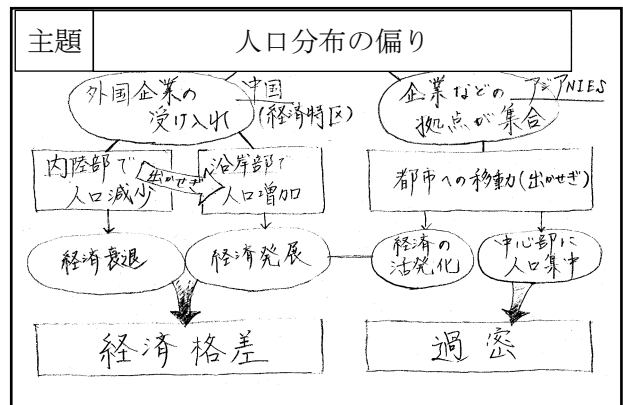 主題 人口分布の偏り
外国企業の
受け入れ
中国
(経済特区)
企業などの
拠点が集合
アジアNIES
内陸部で
人口減少
出かせぎ
沿岸部で
人口増加
都市への移動(出かせぎ)
経済衰退
経済発展
経済の
活発化
中心部に
人口集中
経済格差
過密